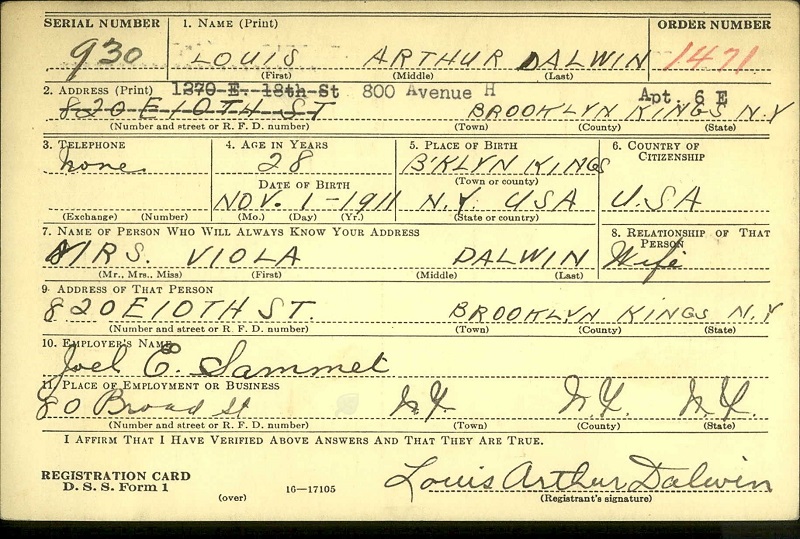 SERIAL NUMBER 1. NAME (Print) ORDER NUMBER
930 LOUIS ARTHUR DALWIN 1471
(First) (Middle) (Last)
2. ADDRESS (Print) 1270 E. 18th St 800 Avenue H Apt. 6 E
820 E 10TH ST BROOKLYN KINGS N.Y
(Number and street or R. F. D. number) (Town) (County) (State)
3. TELEPHONE 4. AGE IN YEARS 5. PLACE OF BIRTH 6. COUNTRY OF CITIZENSHIP
None 28 B'KLYN KINGS
DATE OF BIRTH (Town or county)
NOV. 1-1911 N.Y. USA U.S.A
(Exchange) (Number) (Mo.) (Day) (Yr.) (State or country)
7. NAME OF PERSON WHO WILL ALWAYS KNOW YOUR ADDRESS 8. RELATIONSHIP OF THAT PERSON
MRS. VIOLA DALWIN Wife
(Mr., Mrs., Miss) (First) (Middle) (Last)
9. ADDRESS OF THAT PERSON
820 E 10TH ST. BROOKLYN KINGS N.Y
(Number and street or R. F. D. number) (Town) (County) (State)
10. EMPLOYER'S NAME
Joel E. Sammet
11. PLACE OF EMPLOYMENT OR BUSINESS
80 Broad St N.Y. N.Y. N.Y.
(Number and street or R. F. D. number) (Town) (County) (State)
I AFFIRM THAT I HAVE VERIFIED ABOVE ANSWERS AND THAT THEY ARE TRUE.
REGISTRATION CARD
D. S. S. Form 1 (over) 16—17105 Louis Arthur Dalwin
(Registrant's signature)